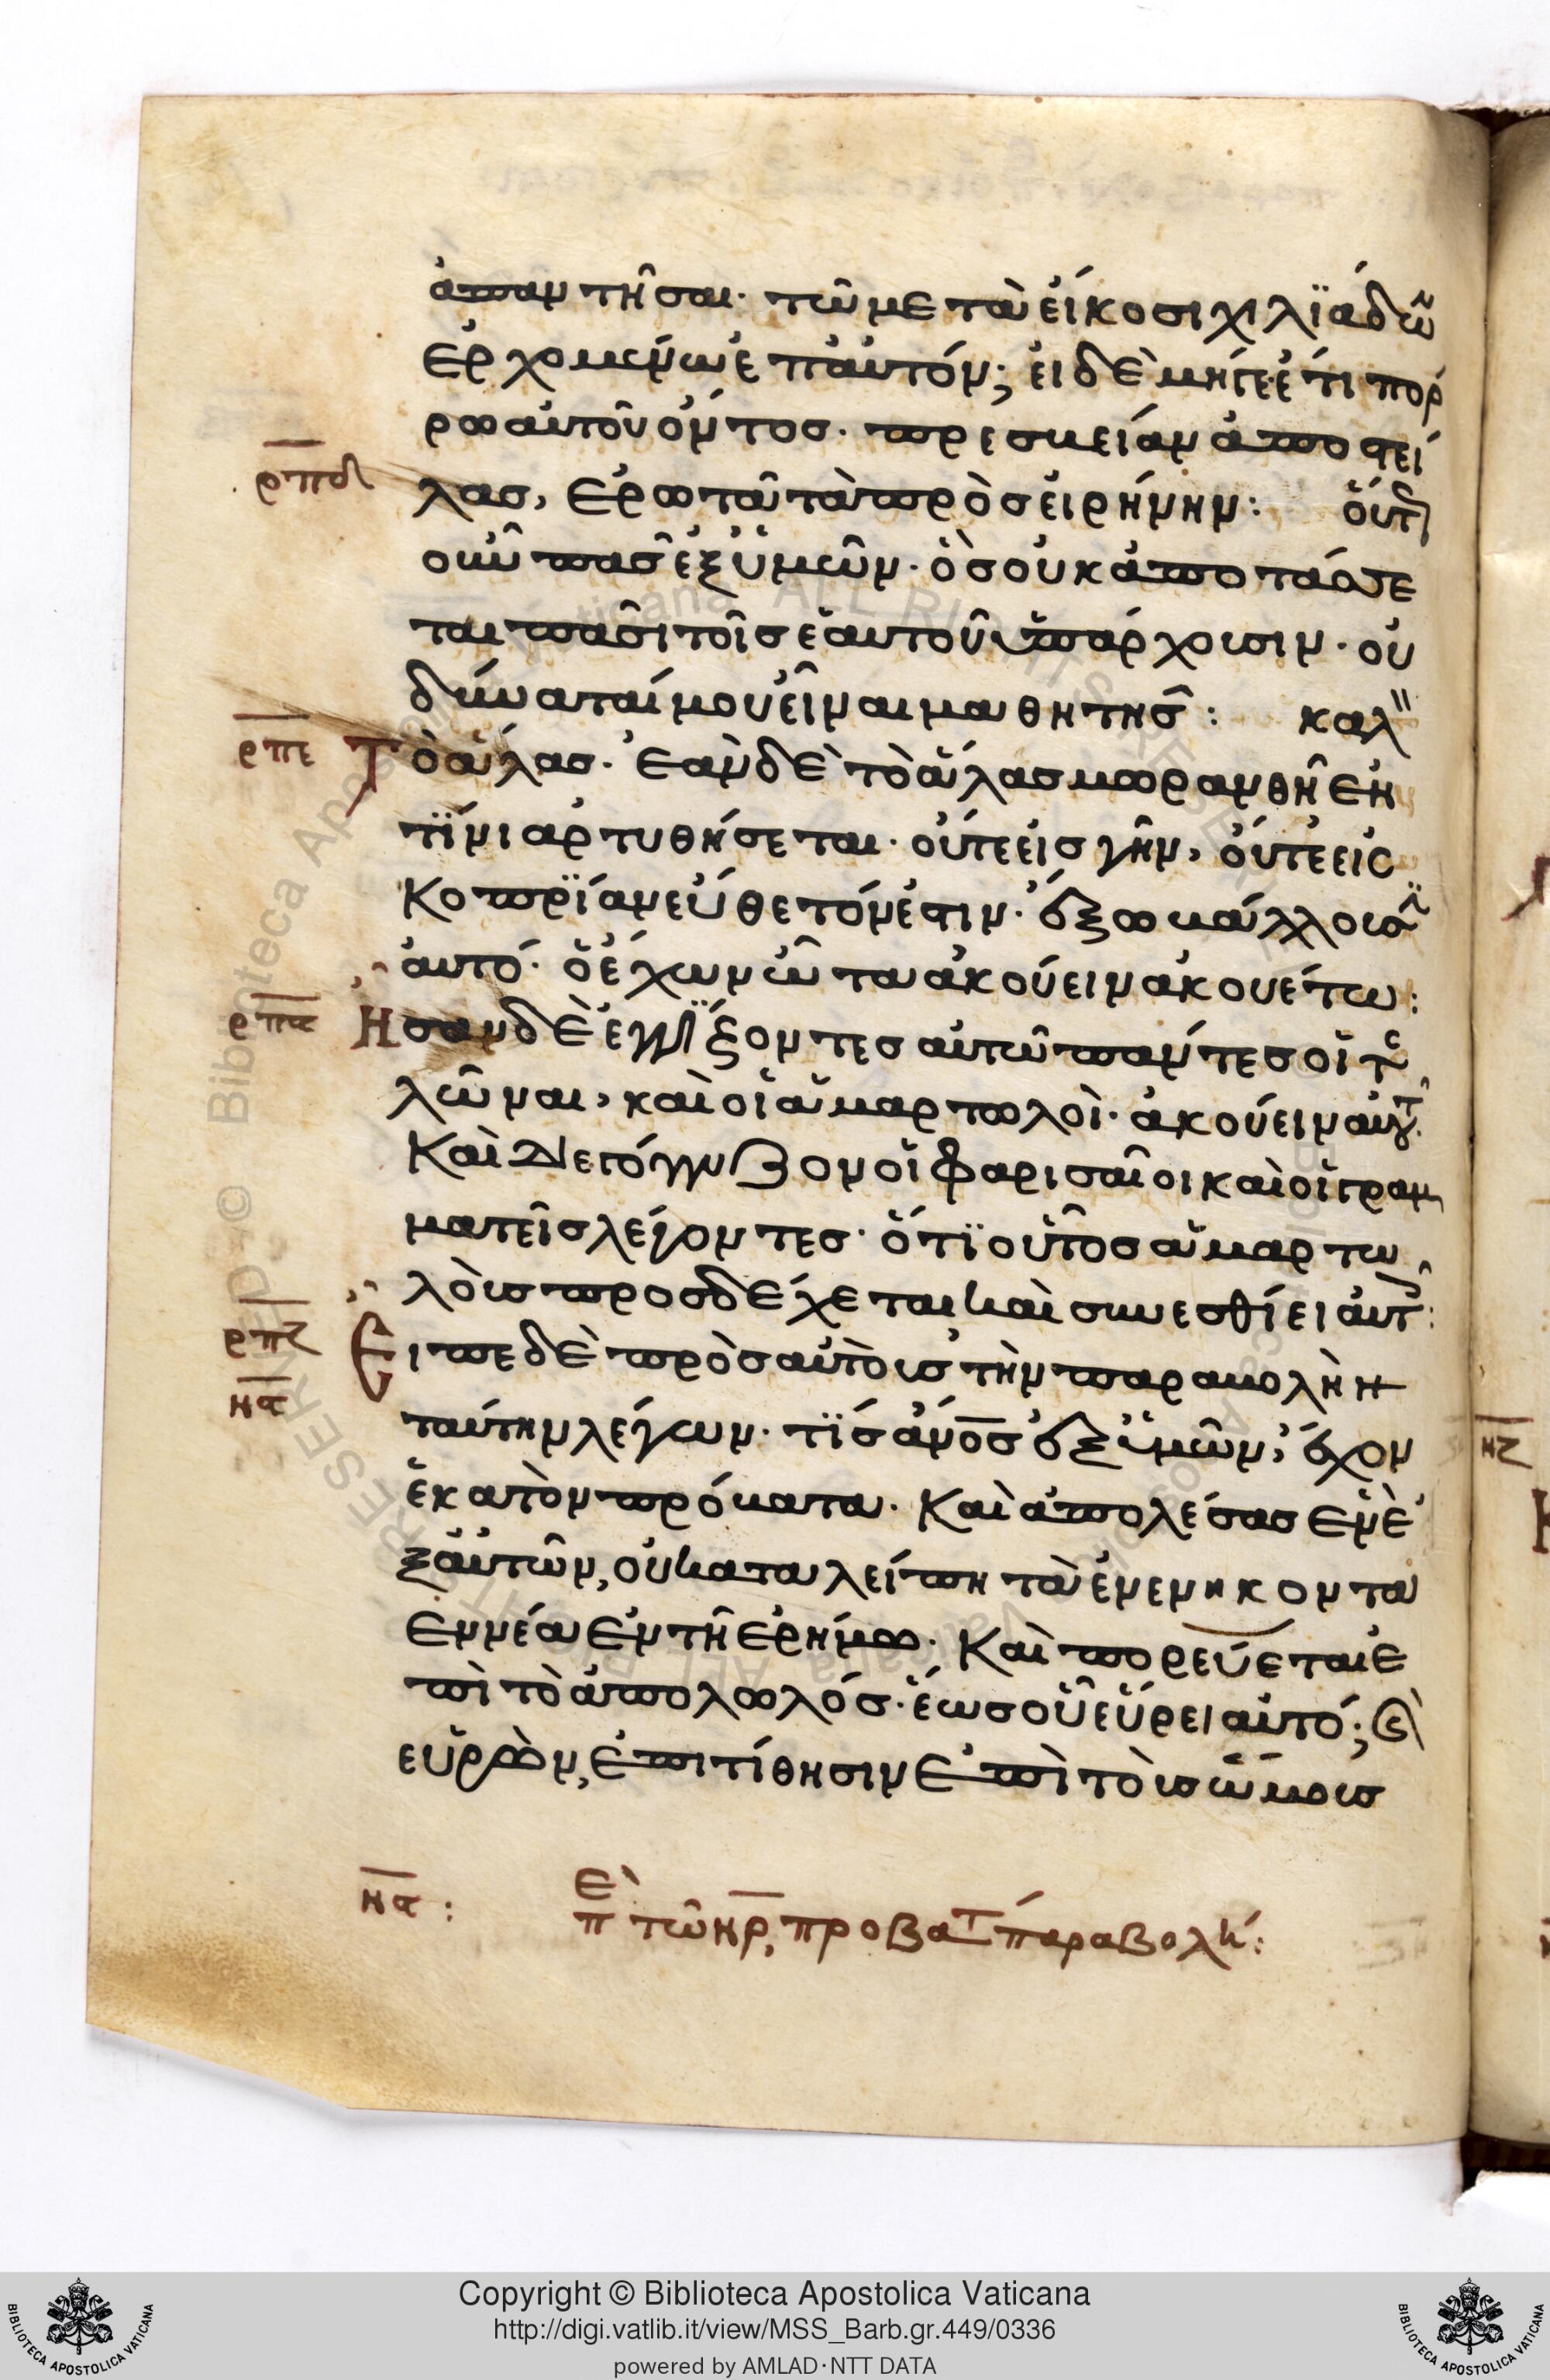 ἀπαντῆσαι· τῶ μετὰ εἴκοσι χιλϊάδω̃
ἐρχομένω ἐπ' αὐτόν; εἰ δὲ μήγε ἔτι πόρ
ρω αὐτοῦ ὄντος· πρεσβείαν ἀποστεί
ρπδ
λας, ἐρωτᾶ τὰ πρὸς εἰρήνην: οὕτ
οὖν πᾶς ἐξ ὑμῶν· ὃς οὐκ ἀποτάσσε
ται πᾶσι τοῖς ἑαυτοῦ ὑπάρχουσιν· οὐ
δύναταί μου εἶναι μαθητής: καλ
ρπε
Τὸ ἅλας· ἐὰν δὲ τὸ ἅλας μωρανθῆ ἐν
τίνι ἀρτυθήσεται· οὔτε εἰς γῆν, οὔτε εἰς
κοπρίαν εὔθετόν ἐστιν· ἔξω βάλλουσϊ
αὐτό· ὁ ἔχων ὦτα ἀκούειν ἀκουέτω:
ρπϛ
Ησαν δὲ ἐγγΐζοντες αὐτῶ πάντες οἱ τε
λῶναι, καὶ οἱ ἁμαρτωλοὶ· ἀκούειν αὐτ
Καὶ διεγόγγυζον οἱ φαρισαῖοι καὶ οἱ γραμ
ματεῖς λέγοντες· ὅτϊ οὗτος ἁμαρτω
λοὺς προσδέχεται καὶ συνεσθίει αὐτ:
ρπζ
να
Εἶπε δὲ πρὸς αὐτοὺς τὴν παραβολὴν
ταύτην λέγων· τΐς ἀνος ἐξ ὑμῶν, ἔχον
ἑκατὸν πρόβατα· Καὶ ἀπολέσας ἓν ἐ
ξ αὐτῶν, οὐ καταλείπη τὰ ἐνενηκοντα
ἐννέα ἐν τῆ ἐρήμω· Καὶ πορεύεται ἐ
πὶ τὸ ἀπολωλός· ἕως οὗ εὕρει αὐτό; ϗ
εὑρὼν, ἐπιτίθησιν ἐπὶ τοὺς ὤμους
να: πε τῶν ρ, προβατ παραβολή:
κζ
Copyright © Biblioteca Apostolica Vaticana
http://digi.vatlib.it/view/MSS_Barb.gr.449/0336
powered by AMLAD·NTT DATA
BIBLIOTECA APOSTOLICA VATICANA
BIBLIOTECA APOSTOLICA VATICANA